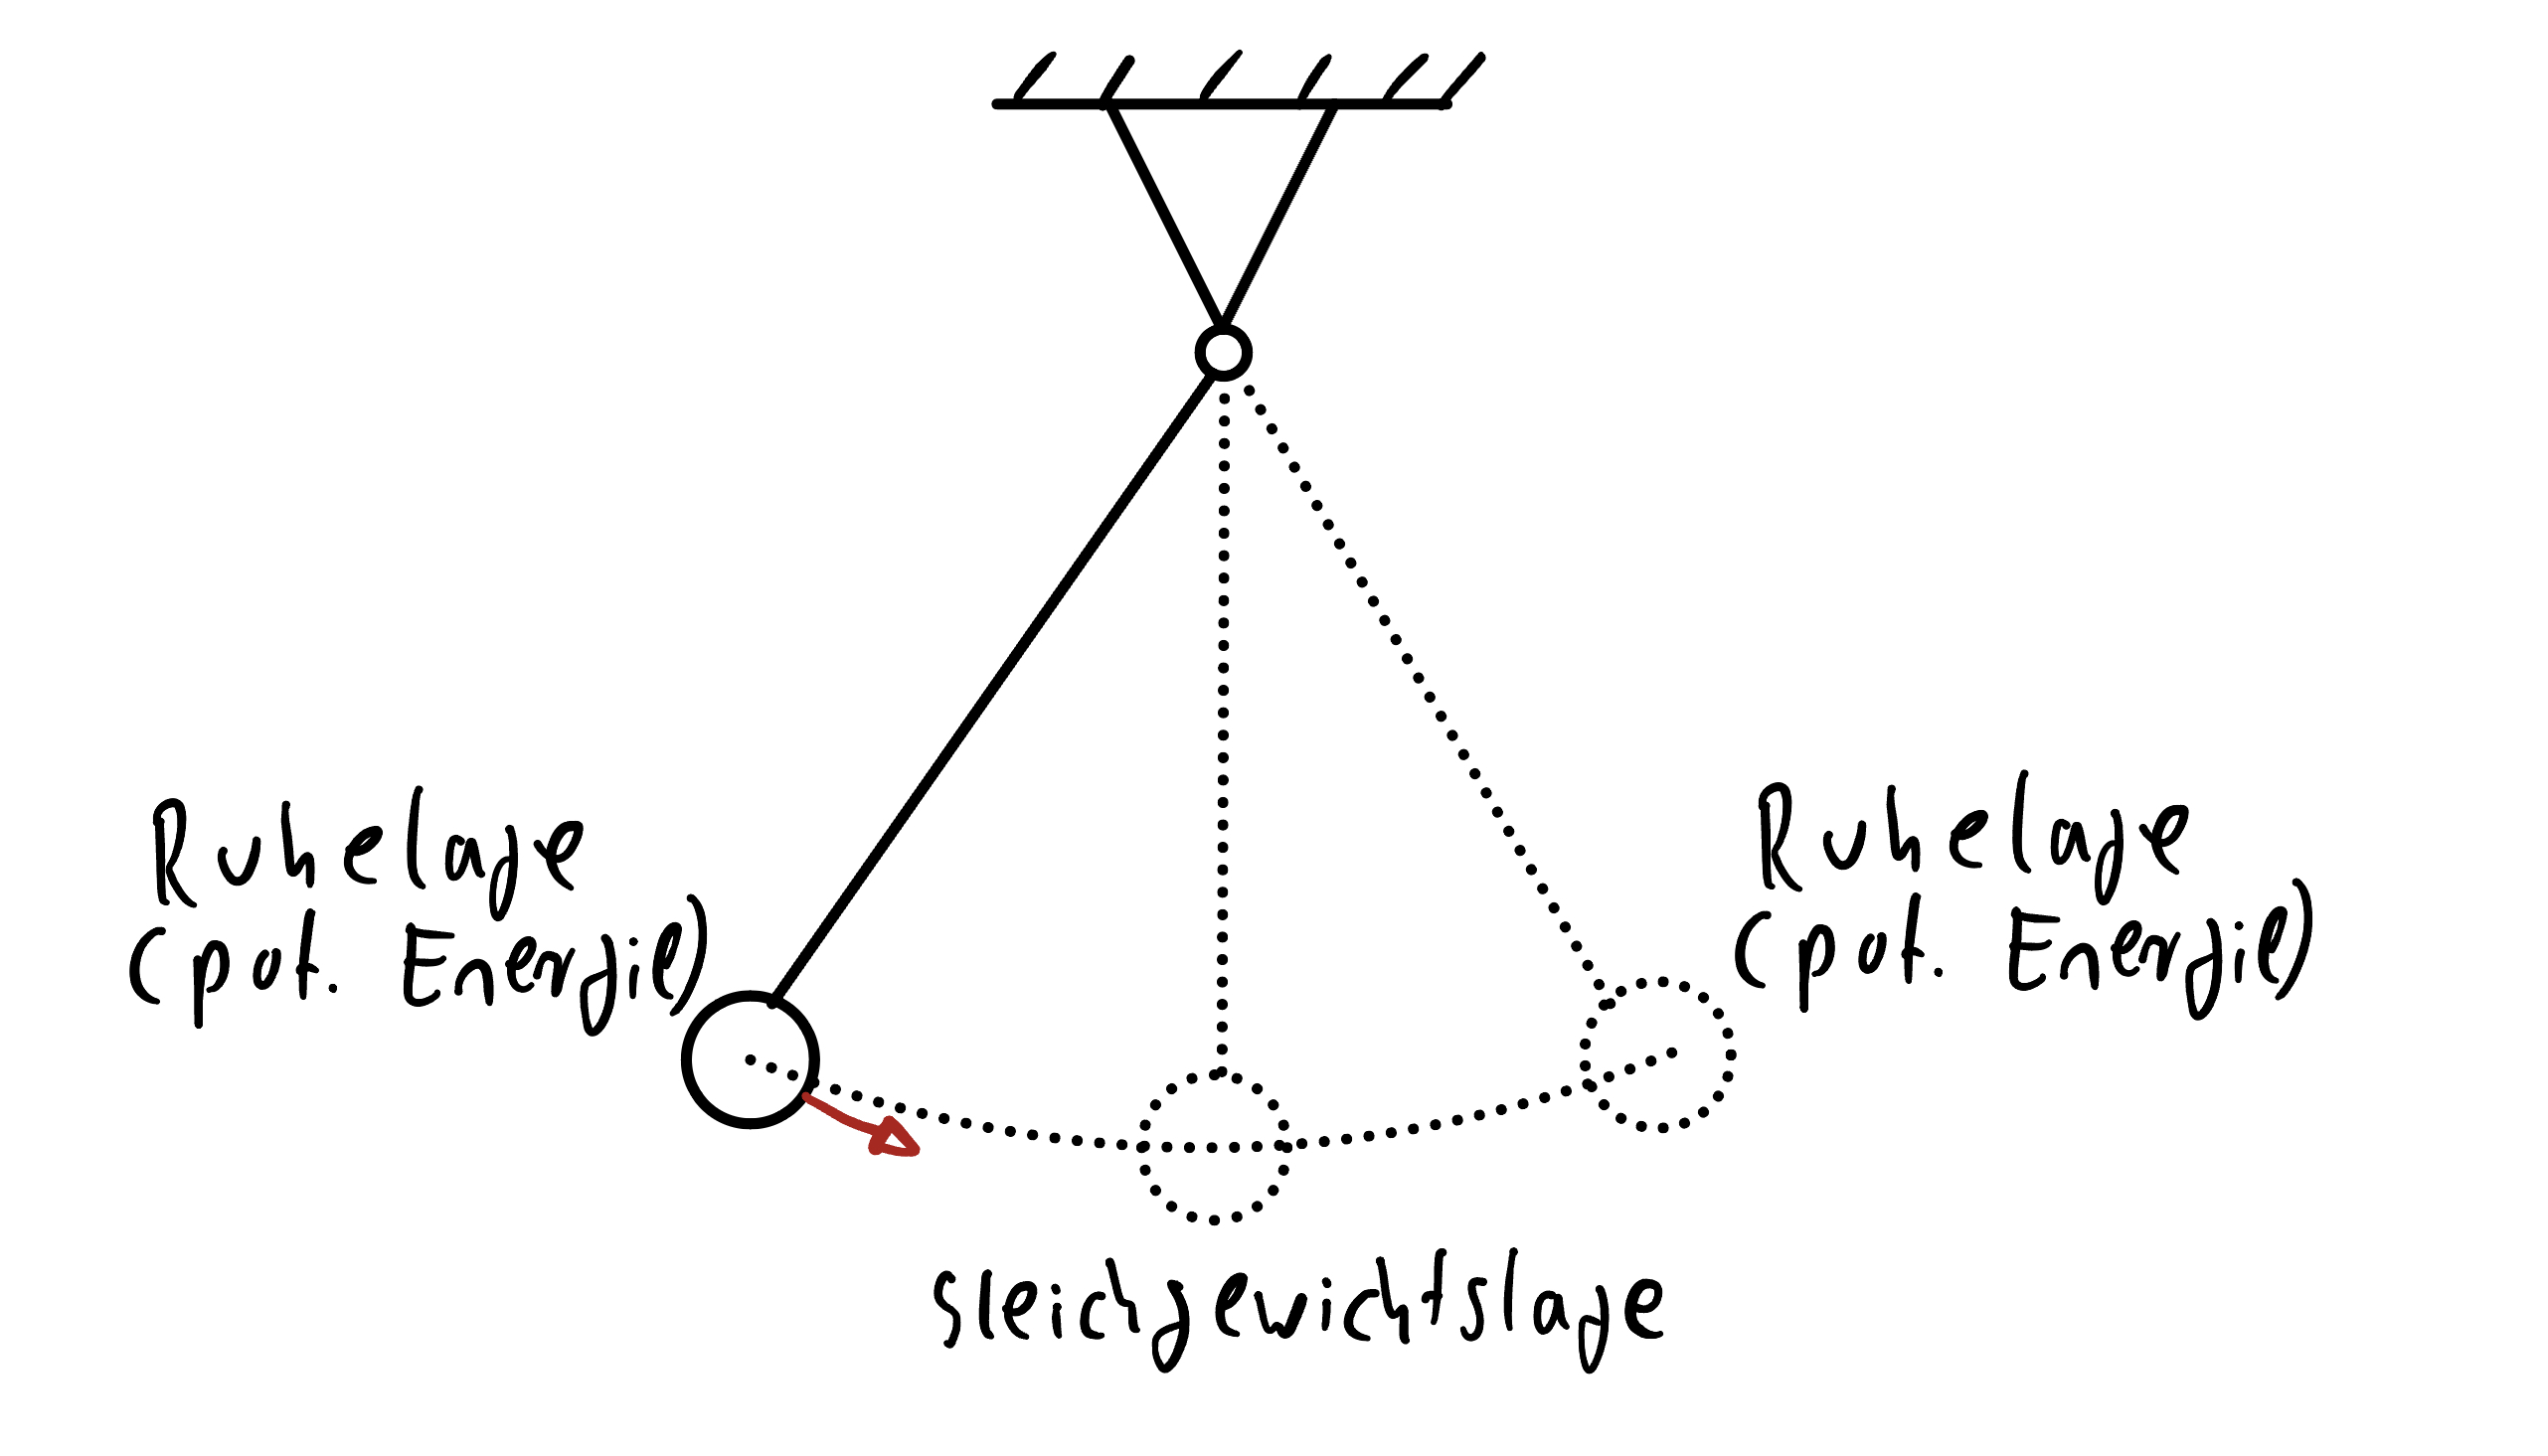 Ruhelage
(pot. Energie)
Ruhelage
(pot. Energie)
Gleichgewichtslage